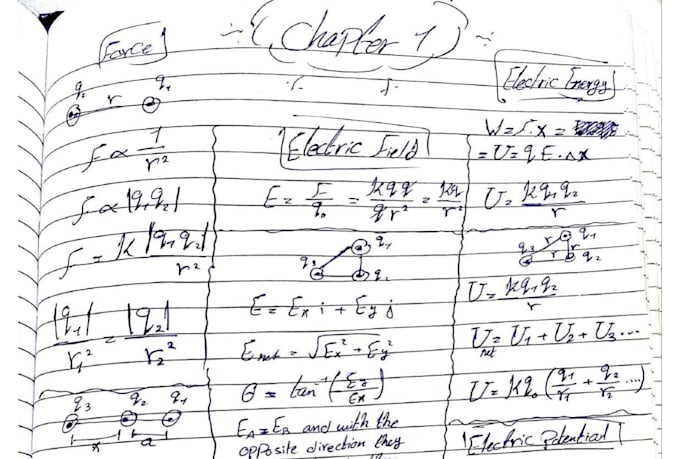 Chapter 1
Force
q₂ r q₁
F ∝ 1/r²
F ∝ |q₁q₂|
F = k|q₁q₂|/r²
|q₁|/r₁² = |q₂|/r₂²
q₃ q₂ q₁
x a
Electric Field
E = F/q₀ = kqq/qr² = kq/r²
q₃ q₁
q₂
E = Ex i + Ey j
Enet = √Ex² + Ey²
θ = tan⁻¹(Ey/Ex)
EA = EB and with the
opposite direction they
Electric Energy
W = F.x =
= U = qE.Δx
U = kq₁q₂/r
q₃ r q₁
r r q₂
U = kq₁q₂/r
Unet = U₁ + U₂ + U₃...
U = kq₀(q₁/r₁ + q₂/r₂ ...)
Electric Potential